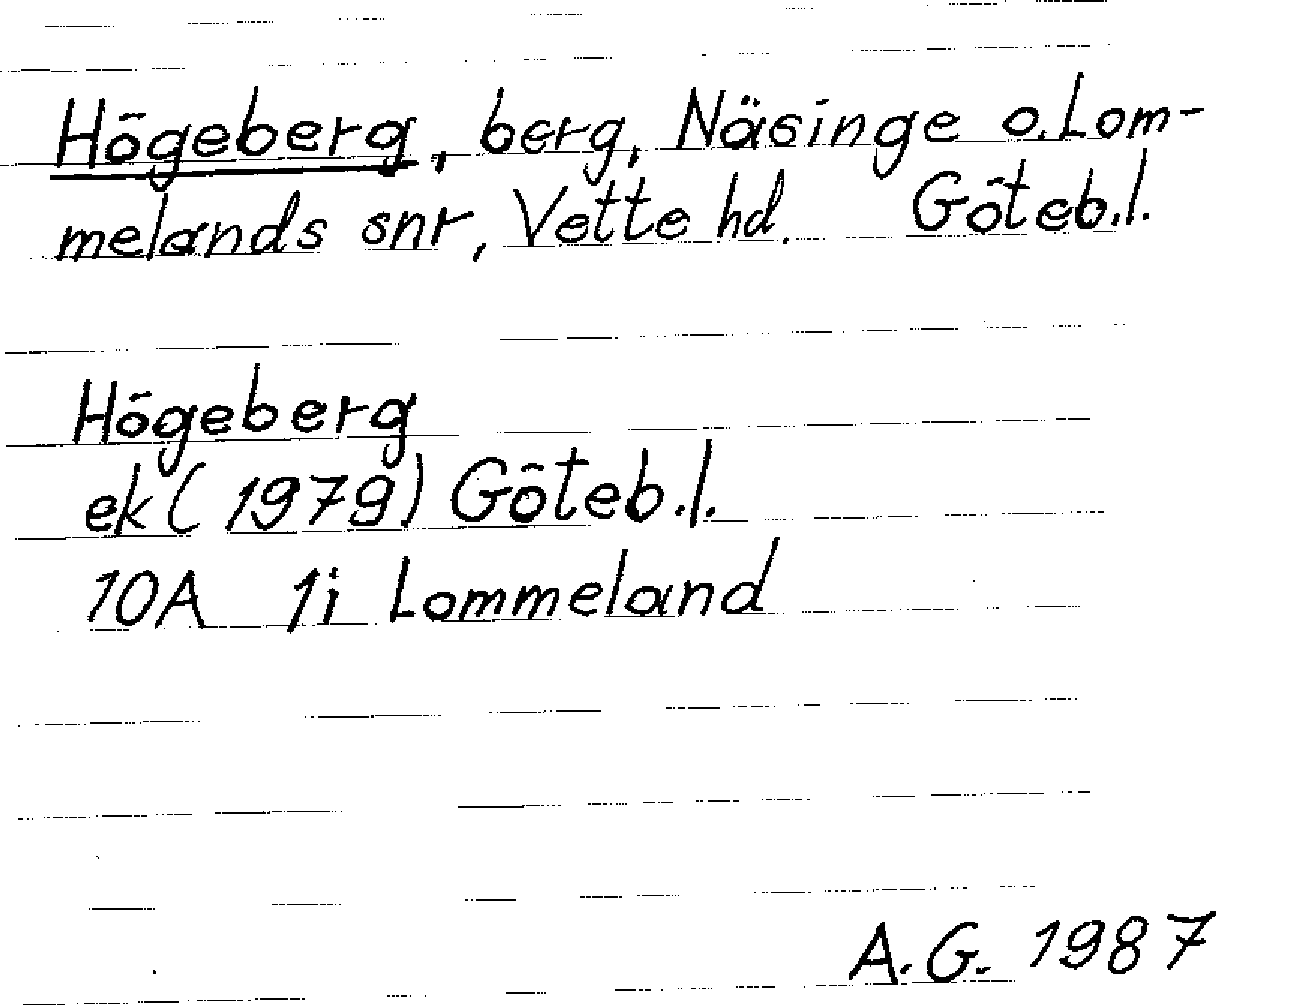 Högeberg, berg, Näsinge o. Lom-
melands snr, Vette hd. Göteb.l.
Högeberg
ek (1979) Göteb.l.
10A 1i Lommeland
A.G. 1987